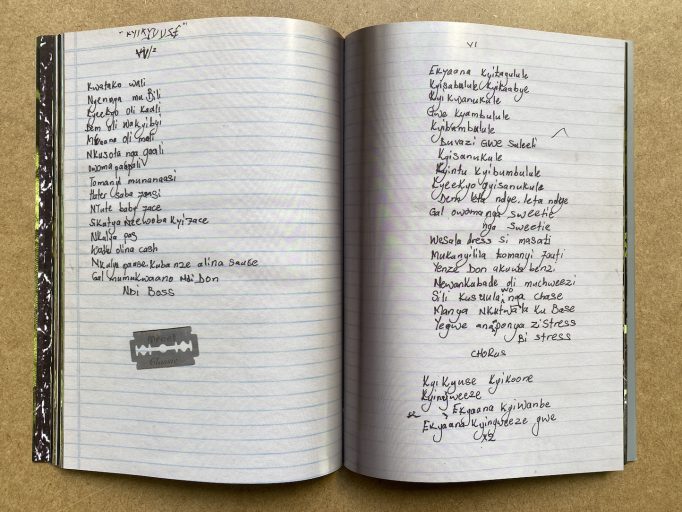 "KYIKYUUSE"
V/2
Kwatako wali
Ngennya mu Bili
Kyeekyo oli Kaali
Dem oli wakyibyi
Mboona oli mali
Nkusota nga gaali
owoma papaali
Tomanyi munanaasi
Hater saba
Ntute baby face
Sikatya Nzewooba Kyi face
Nkalya pas
Waku olina cash
Nkalya paase Kuba nze alina sause
Gal mumukwaano Ndi Don
Ndi Boss
Classic
V1
Ekyaana Kyitagulule
Kyisabalule Kyikaabye
Kyikwanukule
Gwe Kyambulule
Kyibambalule
Buvazi Gwe Suleeti
Kyisanukule
Kyintu Kyibumbulule
Kyeekyo gyisanukule
Dem leta ndge. leta ndge
Gal owoma nga sweetie
nga sweetie
Wesala dress si masati
Mukanyilila tomanyi
Yenze Don akuwa benzi
Newankubade oli muchweezi
Sili Kusuula wo nga Chase
Manya Nkutwala Ku Base
Yegwe anaaponya zi Stress
Bi stress
CHORUS
Kyi Kyuse Kyikoore
Kyingweeze
Ekyaana Kyiwanbe
Ekyaana Kyingweeze gwe
x2